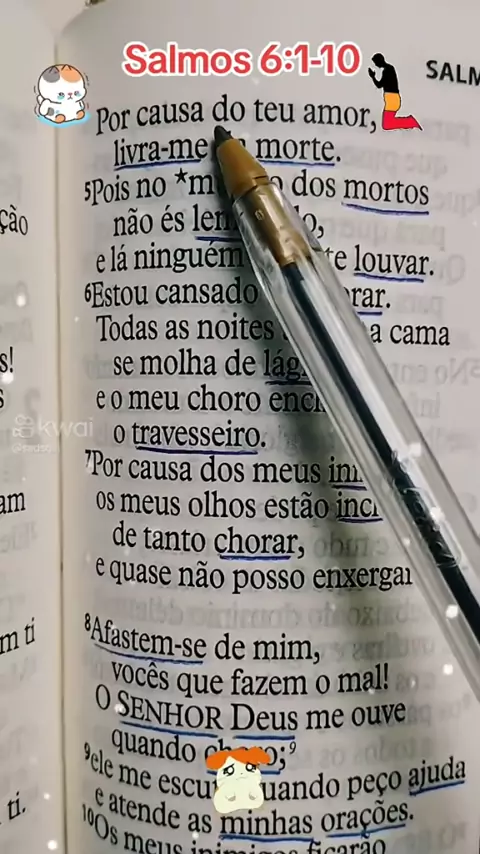 Salmos 6:1-10
SALM
Por causa do teu amor,
livra-me morte.
5Pois no *m dos mortos
não és
e lá ninguém te louvar.
6Estou cansado
Todas as noites cama
se molha de
e o meu choro
o travesseiro.
7Por causa dos meus
os meus olhos estão
de tanto chorar,
e quase não posso enxergar
8Afastem-se de mim,
vocês que fazem o mal!
O SENHOR Deus me ouve
quando choro;9
9ele me quando peço ajuda
e atende as minhas orações.
10Os meus inimigos ficarão
ção
s!
s
am
m ti
ti.
kwai